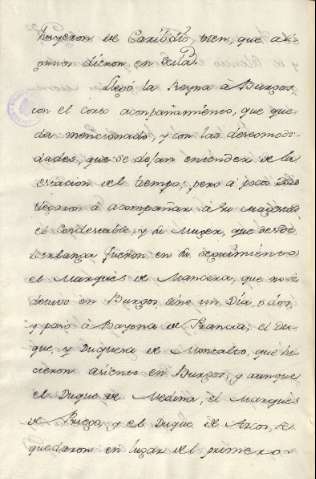 huyeron de Caribdis, bien, que al-
gunos dieron en Scila.
Llegó la Reyna à Burgos,
con el corto acompañamiento, que que-
da mencionado, y con las descomodi-
dades, que se dejan entender de la
estacion del tiempo; pero a poco
llegaron à acompañar à Su Magestad
el Condestable, y su Muger, que desde
fueron en su seguimiento;
el Marqués de Mancera, que no se
detuvo en Burgos sino un Dia, o dos,
y pasó à Bayona de Francia; el Du-
que, y Duquesa de Montalto, que hi-
cieron asiento en Burgos; y aunque
el Duque de Medina, el Marqués
de Priego, y el Duque de Arcos, se
quedaron en lugar del primero